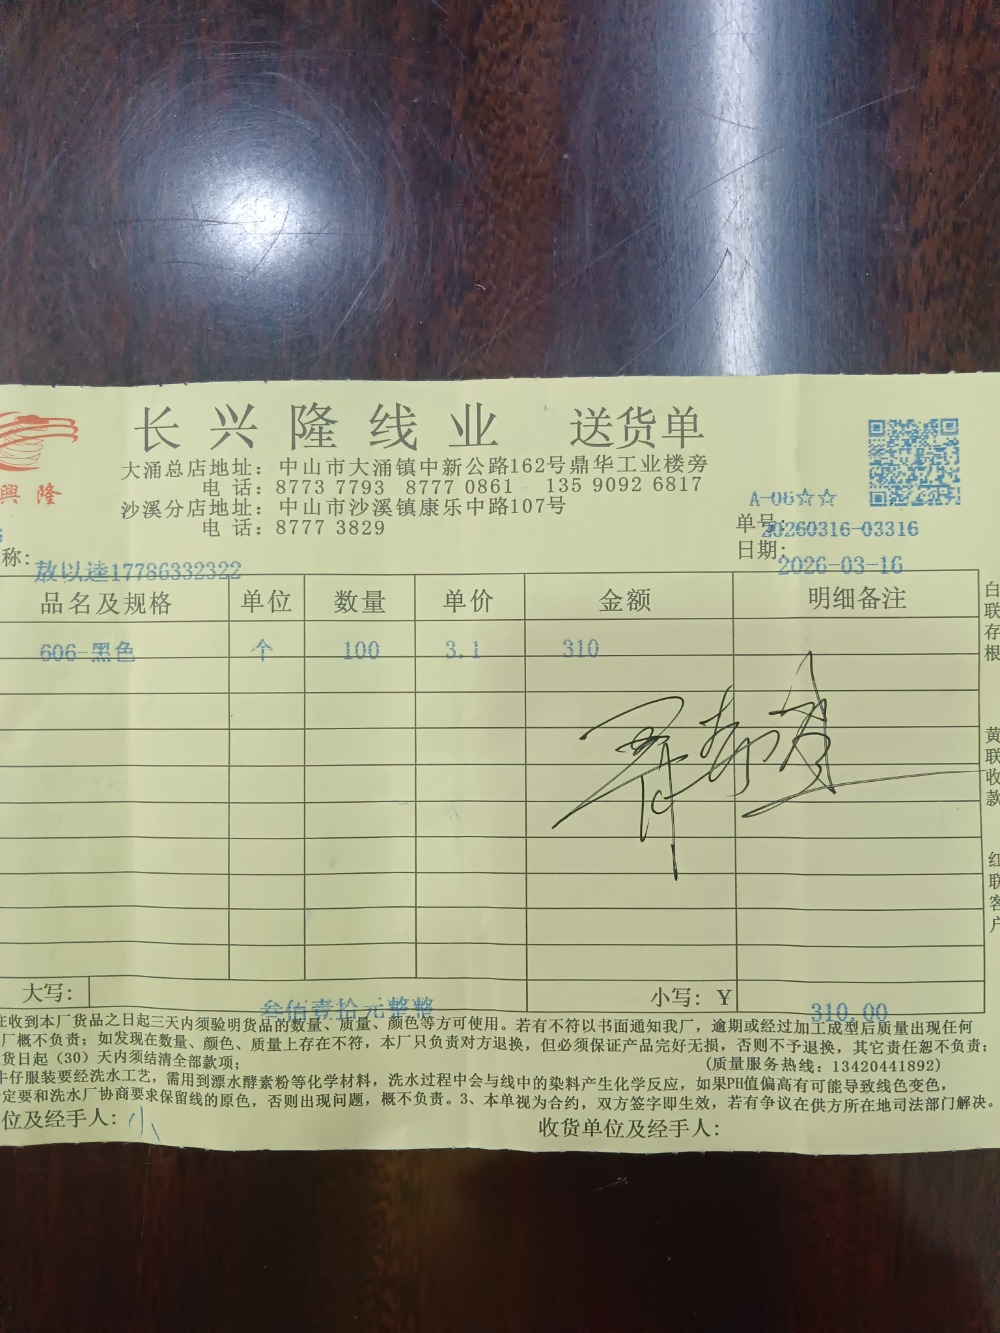 长兴隆线业 送货单
大涌总店地址：中山市大涌镇中新公路162号鼎华工业楼旁
电 话：8773 7793 8777 0861 135 9092 6817
沙溪分店地址：中山市沙溪镇康乐中路107号
电 话：8777 3829
興隆
A-06☆☆
单号:20260316-03316
日期:2026-03-16
称:敖以逵17786332322
品名及规格 单位 数量 单价 金额 明细备注
606-黑色 个 100 3.1 310
白联存根
黄联收款
红联客户
大写: 叁佰壹拾元整整 小写: ¥ 310.00
在收到本厂货品之日起三天内须验明货品的数量、质量、颜色等方可使用。若有不符以书面通知我厂，逾期或经过加工成型后质量出现任何
厂概不负责；如发现在数量、颜色、质量上存在不符，本厂只负责对方退换，但必须保证产品完好无损，否则不予退换，其它责任恕不负责；
货日起（30）天内须结清全部款项； (质量服务热线：13420441892)
牛仔服装要经洗水工艺，需用到漂水酵素粉等化学材料，洗水过程中会与线中的染料产生化学反应，如果PH值偏高有可能导致线色变色，
定要和洗水厂协商要求保留线的原色，否则出现问题，概不负责。3、本单视为合约，双方签字即生效，若有争议在供方所在地司法部门解决。
位及经手人: 小 收货单位及经手人: